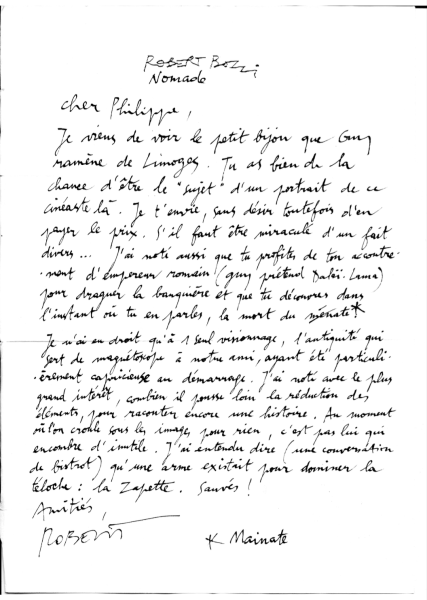 ROBERT BOZZI
Nomade
Cher Philippe,
Je viens de voir le petit bijon que Guy
ramène de Limoges. Tu as bien de la
chance d'être le "sujet" d'un portrait de ce
cinéaste là. Je t'envie, sans désir toutefois d'en
payer le prix. S'il faut être miraculé d'un fait
divers... J'ai noté aussi que tu profites de ton accoutre-
-ment d'empereur romain (guy prétend Dalaï-Lama)
pour draguer la banquière et que tu découvres dans
l'instant où tu en parles, la mort du ménate*
Je n'ai eu droit qu'à 1 seul visionnage, l'antiquité qui
sert de magnétoscope à notre ami, ayant été particuli-
-èrement capricieuse au démarrage. J'ai noté avec le plus
grand intérêt, combien il pousse loin la réduction des
éléments, pour raconter encore une histoire. Au moment
où l'on croule sous les images pour rien, c'est pas lui qui
encombre d'inutile. J'ai entendu dire (une conversation
de bistrot) qu'une arme existait pour dominer la
téloche : la Zapette. Sauvés !
Amitiés,
ROBERT
* Mainate